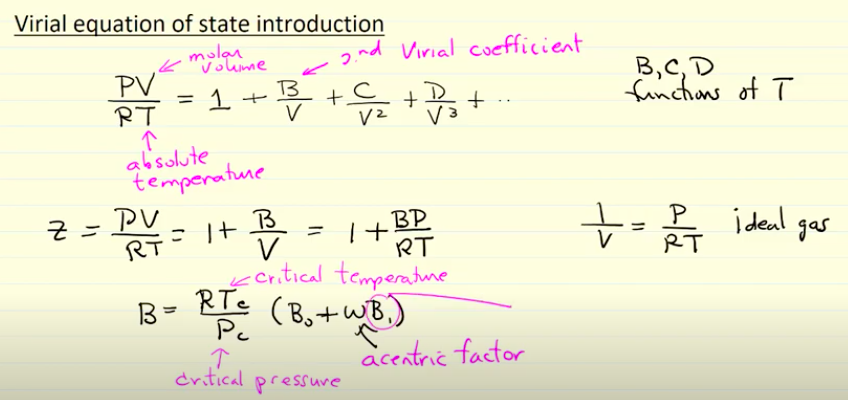 Virial equation of state introduction
molar volume
2nd Virial coefficient
PV/RT = 1 + B/V + C/V² + D/V³ + ..
B, C, D
functions of T
absolute
temperature
Z = PV/RT = 1 + B/V = 1 + BP/RT
1/V = P/RT ideal gas
critical temperature
B = RTc/Pc (B₀ + ωB₁)
acentric factor
critical pressure